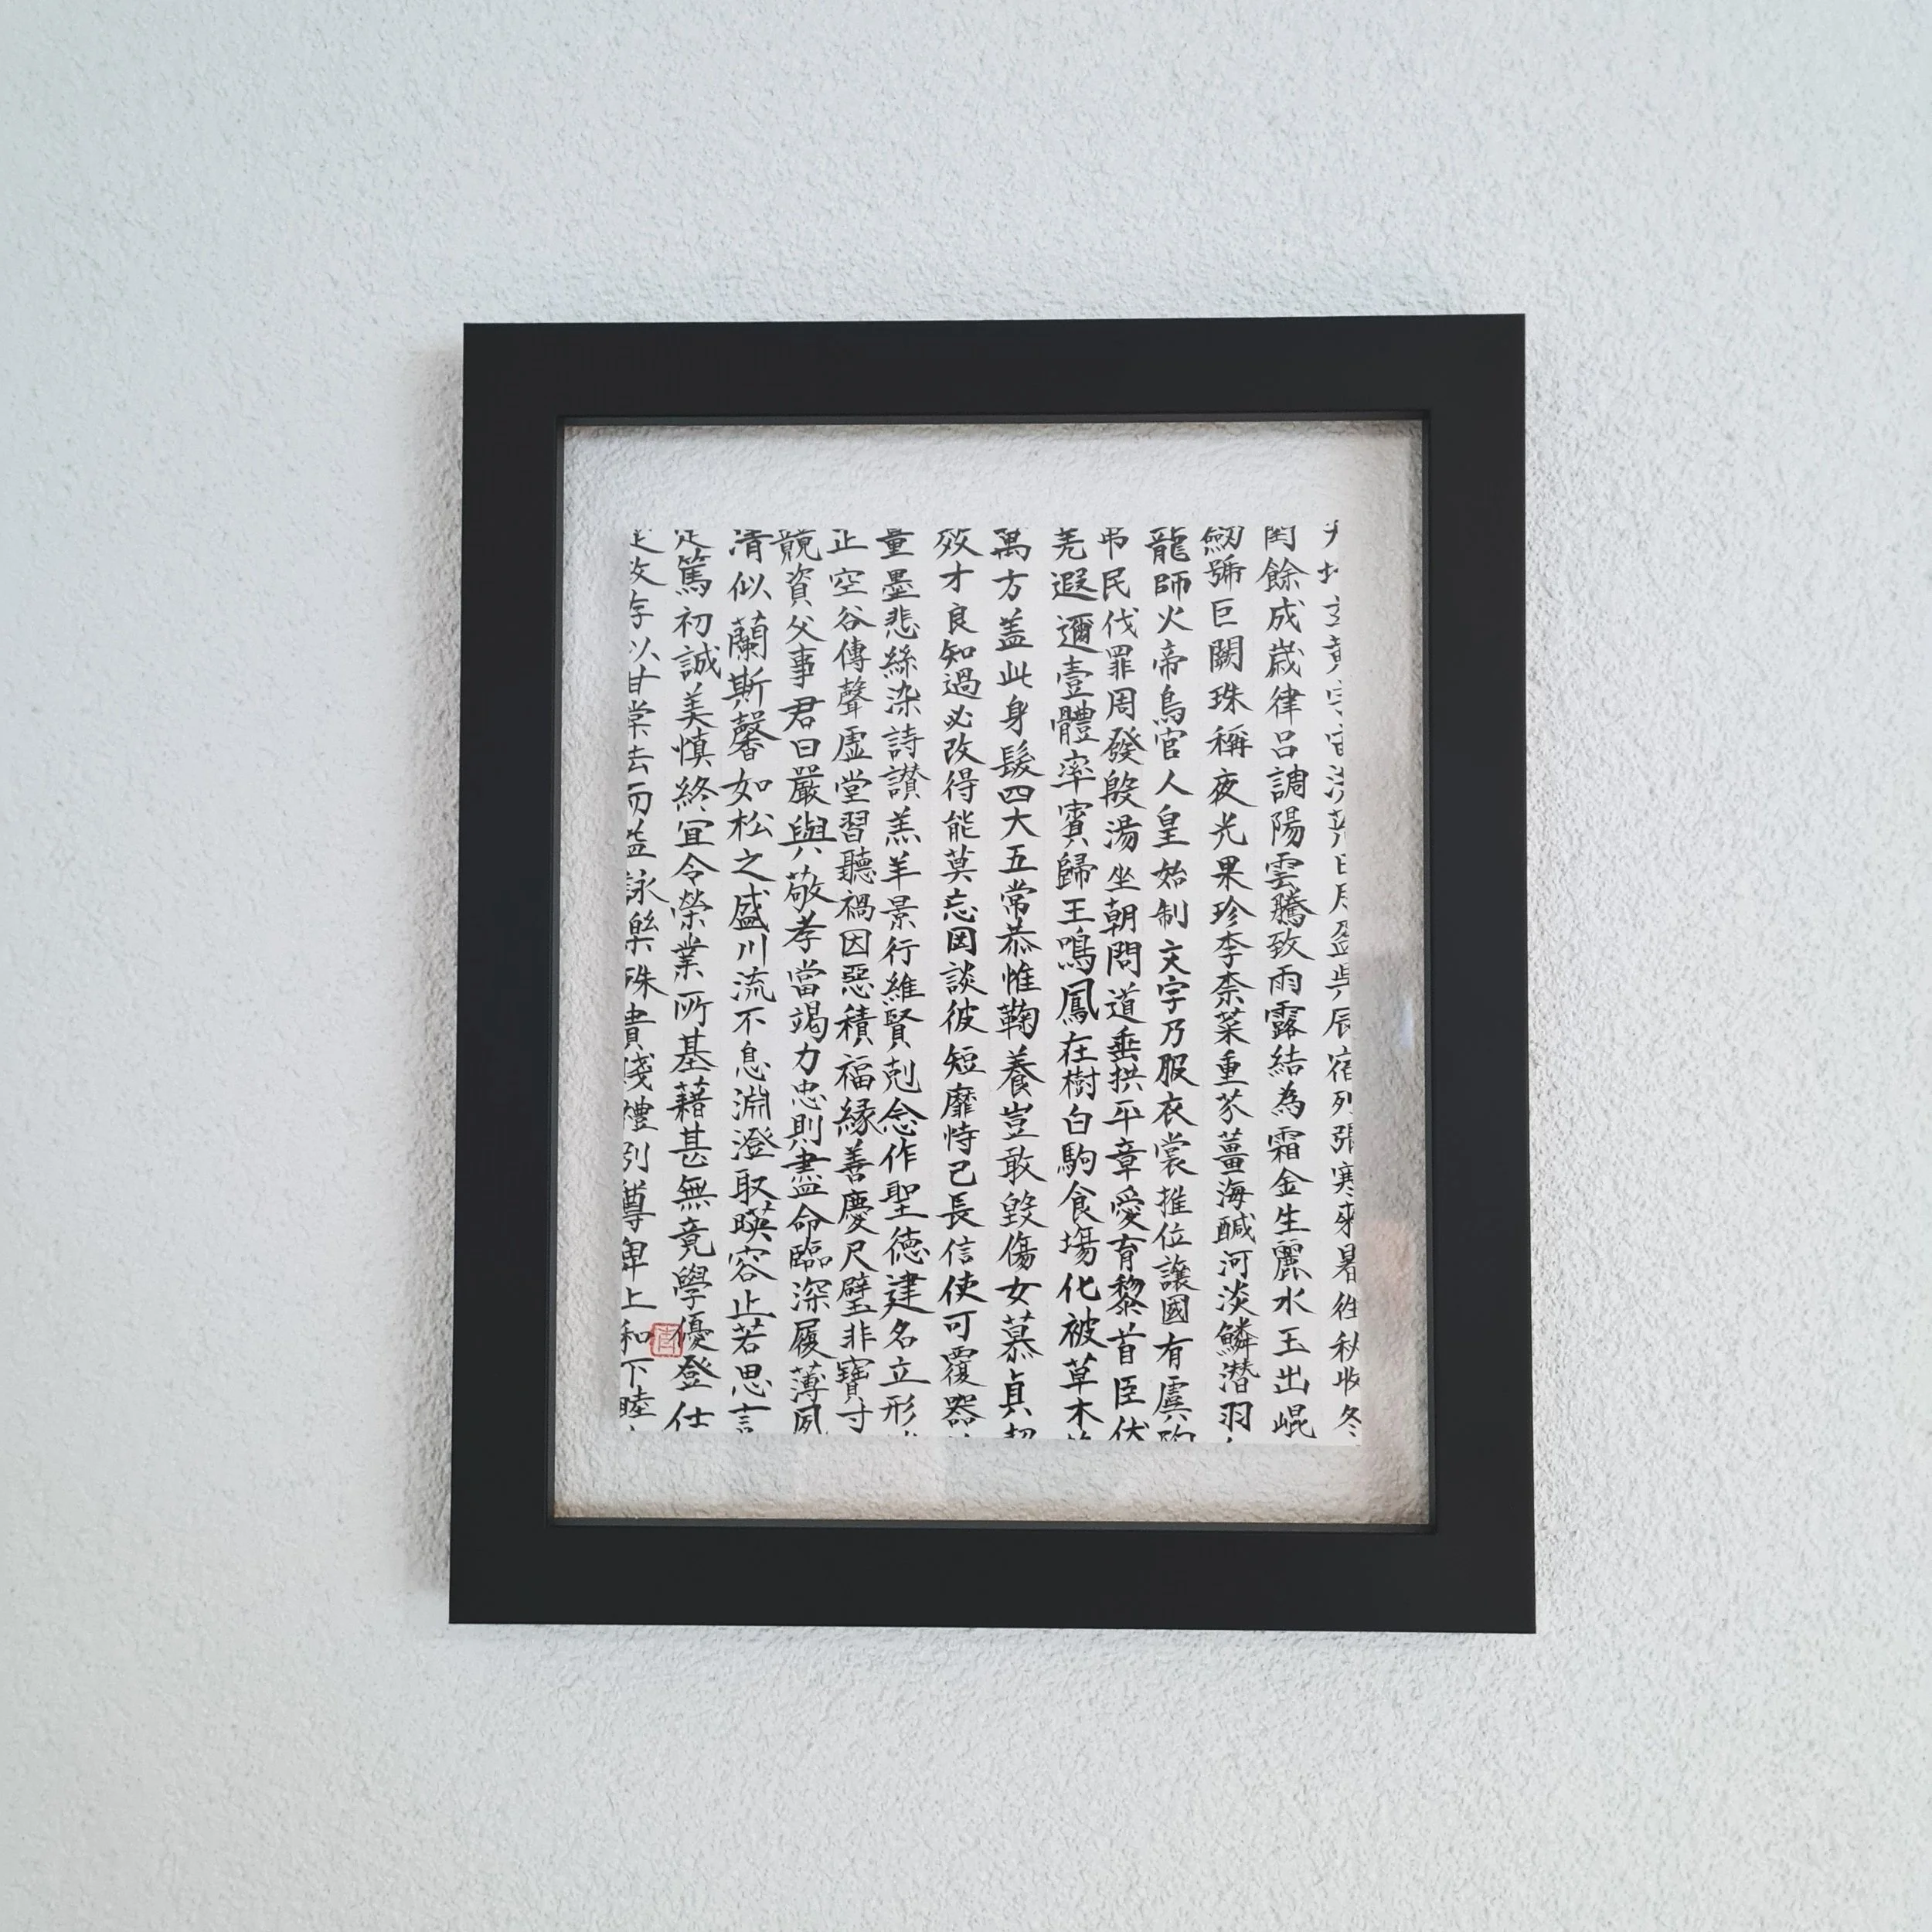 天地玄黃宇宙洪荒日月盈昃辰宿列張寒来暑往秋收冬
閏餘成歲律呂調陽雲騰致雨露結為霜金生麗水玉出崐
劒號巨闕珠稱夜光果珍李柰菜重芥薑海醎河淡鱗潜羽
龍師火帝鳥官人皇始制文字乃服衣裳推位讓國有虞陶
弔民伐罪周發殷湯坐朝問道垂拱平章愛育黎首臣伏
羌遐邇壹體率賓歸王鳴鳳在樹白駒食場化被草木
萬方盖此身髮四大五常恭惟鞠養豈敢毀傷女慕貞絜
效才良知過必改得能莫忘罔談彼短靡恃己長信使可覆器
量墨悲絲染詩讃羔羊景行維賢剋念作聖德建名立形
正空谷傳聲虛堂習聽禍因惡積福緣善慶尺璧非寶寸
競資父事君曰嚴與敬孝當竭力忠則盡命臨深履薄夙
清似蘭斯馨如松之盛川流不息淵澄取暎容止若思言
定篤初誠美慎終宜令榮業所基藉甚無竟學優登仕
政存以甘棠去而益詠樂殊貴賤禮別尊卑上和下睦